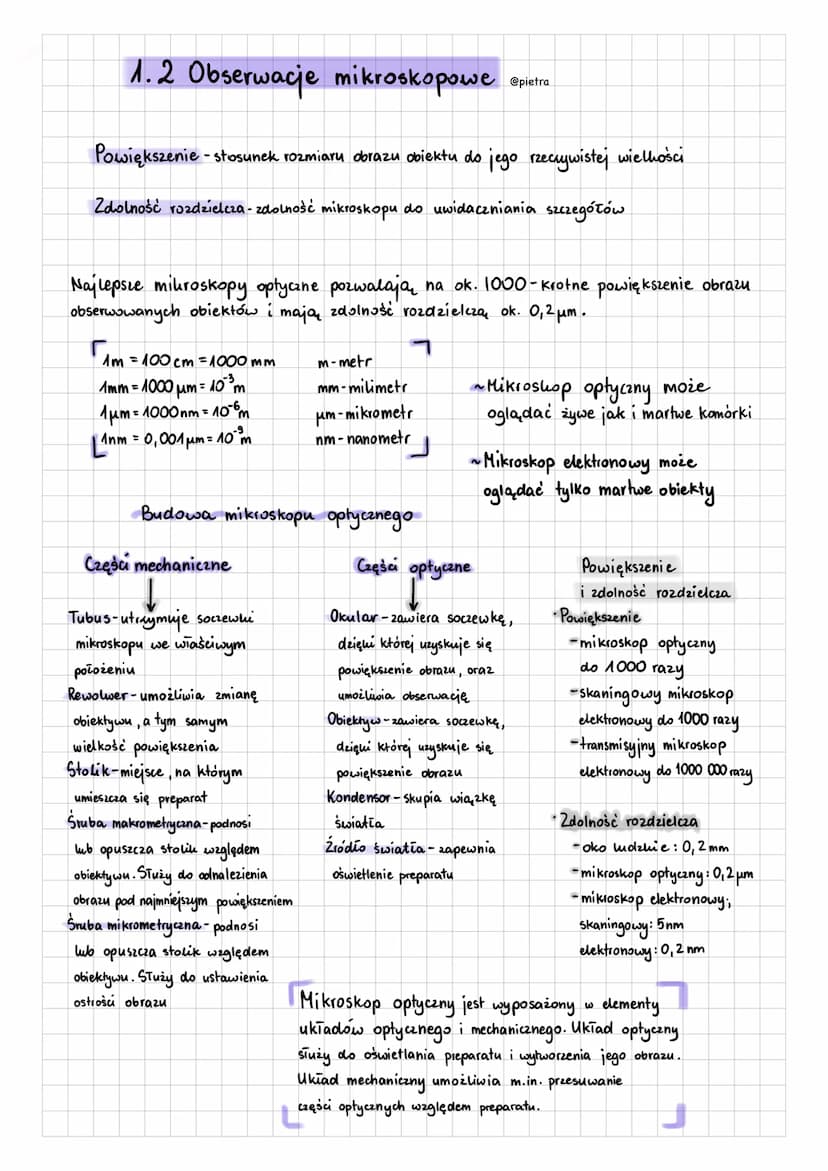 1.2 Obserwacje mikroskopowe @pietra
Powiększenie - stosunek rozmiaru obrazu obiektu do jego rzeczywistej wielkości
Zdolność rozdzielcza - zdolność mikroskopu do uwidaczniania szczegółów
Najlepsze mikroskopy optyczne pozwalają na ok. 1000-krotne powiększenie obrazu
obserwowanych obiektów i mają zdolność rozdzielczą ok. 0,2 µm.
1m = 100 cm = 1000 mm
1mm = 1000 µm = 10⁻³m
1µm = 1000nm = 10⁻⁶m
1nm = 0,001µm = 10⁻⁹m
m - metr
mm - milimetr
µm - mikrometr
nm - nanometr
~Mikroskop optyczny może
oglądać żywe jak i martwe komórki
~Mikroskop elektronowy może
oglądać tylko martwe obiekty
Budowa mikroskopu optycznego
Części mechaniczne
Tubus - utrzymuje soczewki
mikroskopu we właściwym
położeniu
Rewolwer - umożliwia zmianę
obiektywu, a tym samym
wielkość powiększenia
Stolik - miejsce, na którym
umieszcza się preparat
Śruba makrometryczna - podnosi
lub opuszcza stolik względem
obiektywu. Służy do odnalezienia
obrazu pod najmniejszym powiększeniem
Śruba mikrometryczna - podnosi
lub opuszcza stolik względem
obiektywu. Służy do ustawienia
ostrości obrazu
Części optyczne
Okular - zawiera soczewkę,
dzięki której uzyskuje się
powiększenie obrazu, oraz
umożliwia obserwację
Obiektyw - zawiera soczewkę,
dzięki której uzyskuje się
powiększenie obrazu
Kondensor - skupia wiązkę
światła
Źródło światła - zapewnia
oświetlenie preparatu
Powiększenie
i zdolność rozdzielcza
· Powiększenie
- mikroskop optyczny
do 1000 razy
- skaningowy mikroskop
elektronowy do 1000 razy
- transmisyjny mikroskop
elektronowy do 1000 000 razy
· Zdolność rozdzielcza
- oko ludzkie: 0,2mm
- mikroskop optyczny: 0,2µm
- mikroskop elektronowy;
skaningowy: 5nm
elektronowy: 0,2 nm
Mikroskop optyczny jest wyposażony w elementy
układów optycznego i mechanicznego. Układ optyczny
służy do oświetlania preparatu i wytworzenia jego obrazu.
Układ mechaniczny umożliwia m.in. przesuwanie
części optycznych względem preparatu.